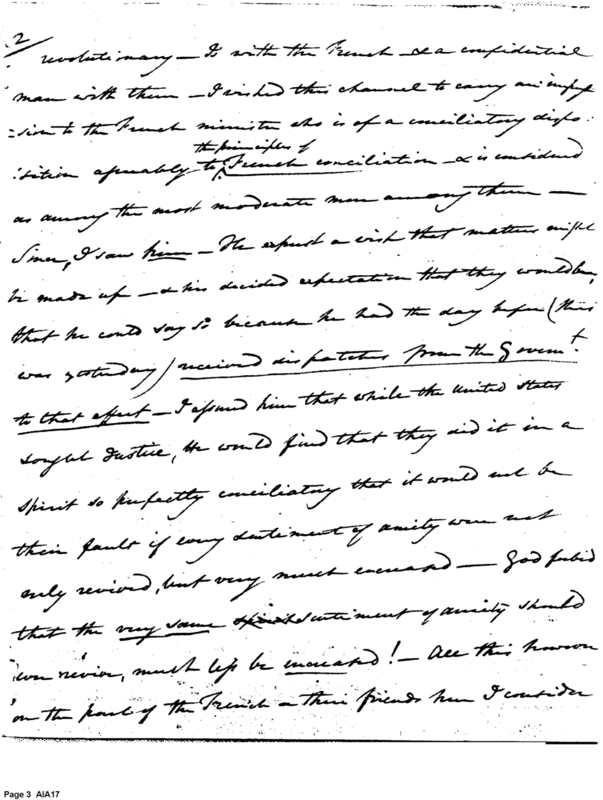 2/
revolutionary — is with the French — & a confidential
man with them — I wished this channel to carry an impres
=sion to the French minister who is of a conciliatory dispo:
the principles of
:sition agreeably to French conciliation — & is considered
as among the most moderate men among them —
Since, I saw him — He exprest a wish that matters might
be made up — & his decided expectation that they would be,
that he could say so because he had the day before (this
was yesterday) received dispatches from the Governt.
to that effect — I assured him that while the United States
sought Justice, He would find that they did it in a
spirit so perfectly conciliatory that it would not be
their fault if every sentiment of amity were not
only revived, but very much encreased — God forbid
that the very same sentiment of amity should
ever revive, much less be encreased! — All this however
on the part of the French or their friends here I consider
Page 3 AIA17